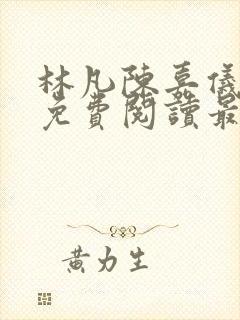 林凡陳嘉儀
免費閱讀最
黃力生